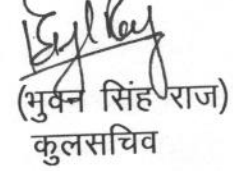 (भुवन सिंह राज)
कुलसचिव